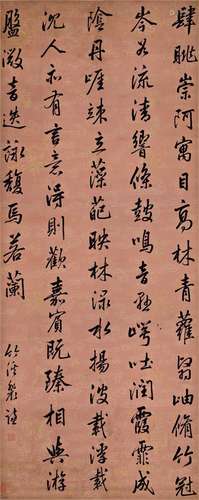 肆眺崇阿寓目高林青蘿翳岫脩竹冠
岑谷流清響條鼓鳴音玄崿吐潤霞霏成
陰丹崕竦立藻葩映林淥水揚波載浮載
沉人亦有言意得則歡嘉賓既臻相與游
盤微音迭詠馥焉若蘭